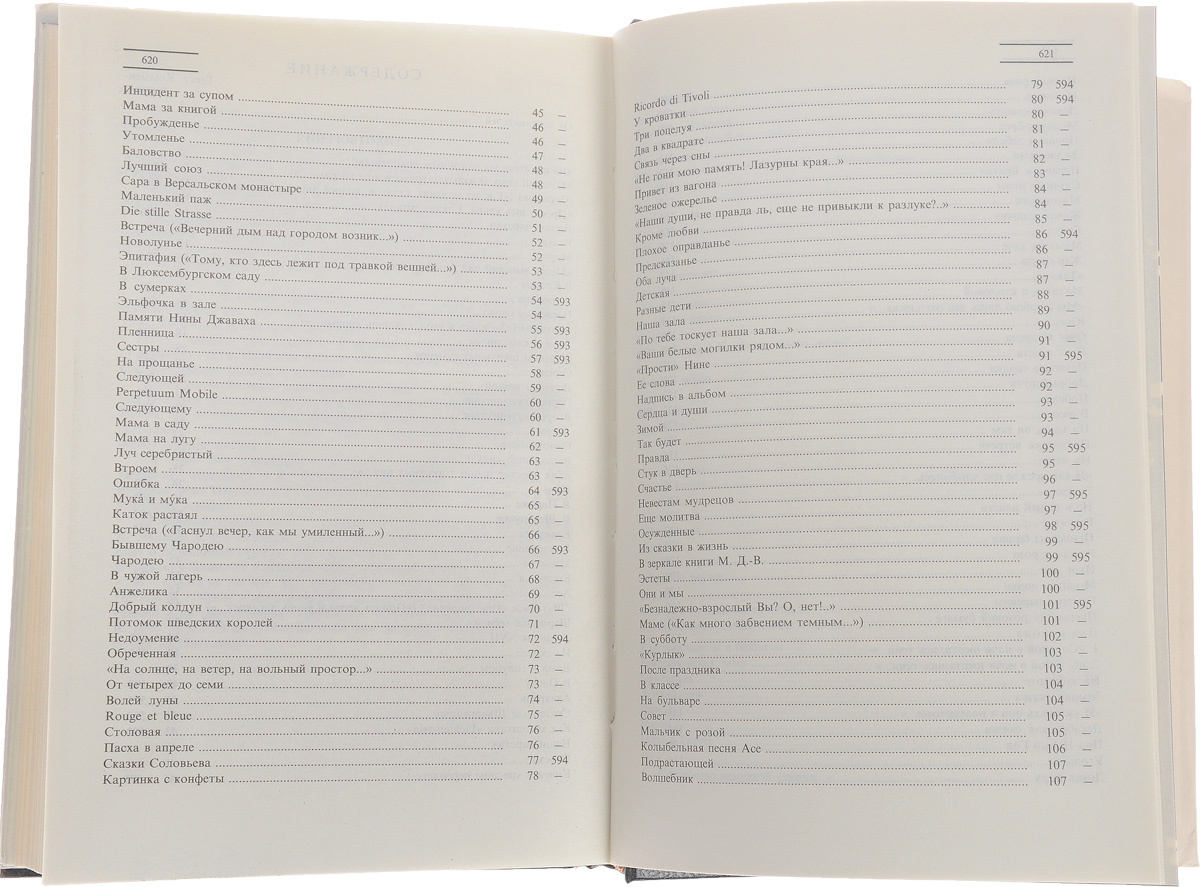 620
Инцидент за супом ..... 45 —
Мама за книгой ..... 46 —
Пробужденье ..... 46 —
Утомленье ..... 47 —
Баловство ..... 48 —
Лучший союз ..... 48 —
Сара в Версальском монастыре ..... 49 —
Маленький паж ..... 50 —
Die stille Strasse ..... 51 —
Встреча («Вечерний дым над городом возник...») ..... 52 —
Новолунье ..... 52 —
Эпитафия («Тому, кто здесь лежит под травкой вешней...») ..... 53 —
В Люксембургском саду ..... 53 —
В сумерках ..... 54 593
Эльфочка в зале ..... 54 —
Памяти Нины Джаваха ..... 55 593
Пленница ..... 56 593
Сестры ..... 57 593
На прощанье ..... 58 —
Следующей ..... 59 —
Perpetuum Mobile ..... 60 —
Следующему ..... 60 —
Мама в саду ..... 61 593
Мама на лугу ..... 62 —
Луч серебристый ..... 63 —
Втроем ..... 63 —
Ошибка ..... 64 593
Мука́ и му́ка ..... 65 —
Каток растаял ..... 65 —
Встреча («Гаснул вечер, как мы умиленный...») ..... 66 —
Бывшему Чародею ..... 66 593
Чародею ..... 67 —
В чужой лагерь ..... 68 —
Анжелика ..... 69 —
Добрый колдун ..... 70 —
Потомок шведских королей ..... 71 —
Недоумение ..... 72 594
Обреченная ..... 72 —
«На солнце, на ветер, на вольный простор...» ..... 73 —
От четырех до семи ..... 73 —
Волей луны ..... 74 —
Rouge et bleue ..... 75 —
Столовая ..... 76 —
Пасха в апреле ..... 76 —
Сказки Соловьева ..... 77 594
Картинка с конфеты ..... 78 —
621
Ricordo di Tivoli ..... 79 594
У кроватки ..... 80 594
Три поцелуя ..... 80 —
Два в квадрате ..... 81 —
Связь через сны ..... 81 —
«Не гони мою память! Лазурны края...» ..... 82 —
Привет из вагона ..... 83 —
Зеленое ожерелье ..... 84 —
«Наши души, не правда ль, еще не привыкли к разлуке?..» ..... 84 —
Кроме любви ..... 85 —
Плохое оправданье ..... 86 594
Предсказанье ..... 86 —
Оба луча ..... 87 —
Детская ..... 87 —
Разные дети ..... 88 —
Наша зала ..... 89 —
«По тебе тоскует наша зала...» ..... 90 —
«Ваши белые могилки рядом...» ..... 91 —
«Прости» Нине ..... 91 595
Ее слова ..... 92 —
Надпись в альбом ..... 92 —
Сердца и души ..... 93 —
Зимой ..... 93 —
Так будет ..... 94 —
Правда ..... 95 595
Стук в дверь ..... 95 —
Счастье ..... 96 —
Невестам мудрецов ..... 97 595
Еще молитва ..... 97 —
Осужденные ..... 98 595
Из сказки в жизнь ..... 99 —
В зеркале книги М. Д.-В. ..... 99 595
Эстеты ..... 100 —
Они и мы ..... 100 —
«Безнадежно-взрослый Вы? О, нет!..» ..... 101 595
Маме («Как много забвением темным...») ..... 101 —
В субботу ..... 102 —
«Курлык» ..... 103 —
После праздника ..... 103 —
В классе ..... 104 —
На бульваре ..... 104 —
Совет ..... 105 —
Мальчик с розой ..... 105 —
Колыбельная песня Асе ..... 106 —
Подрастающей ..... 107 —
Волшебник ..... 107 —